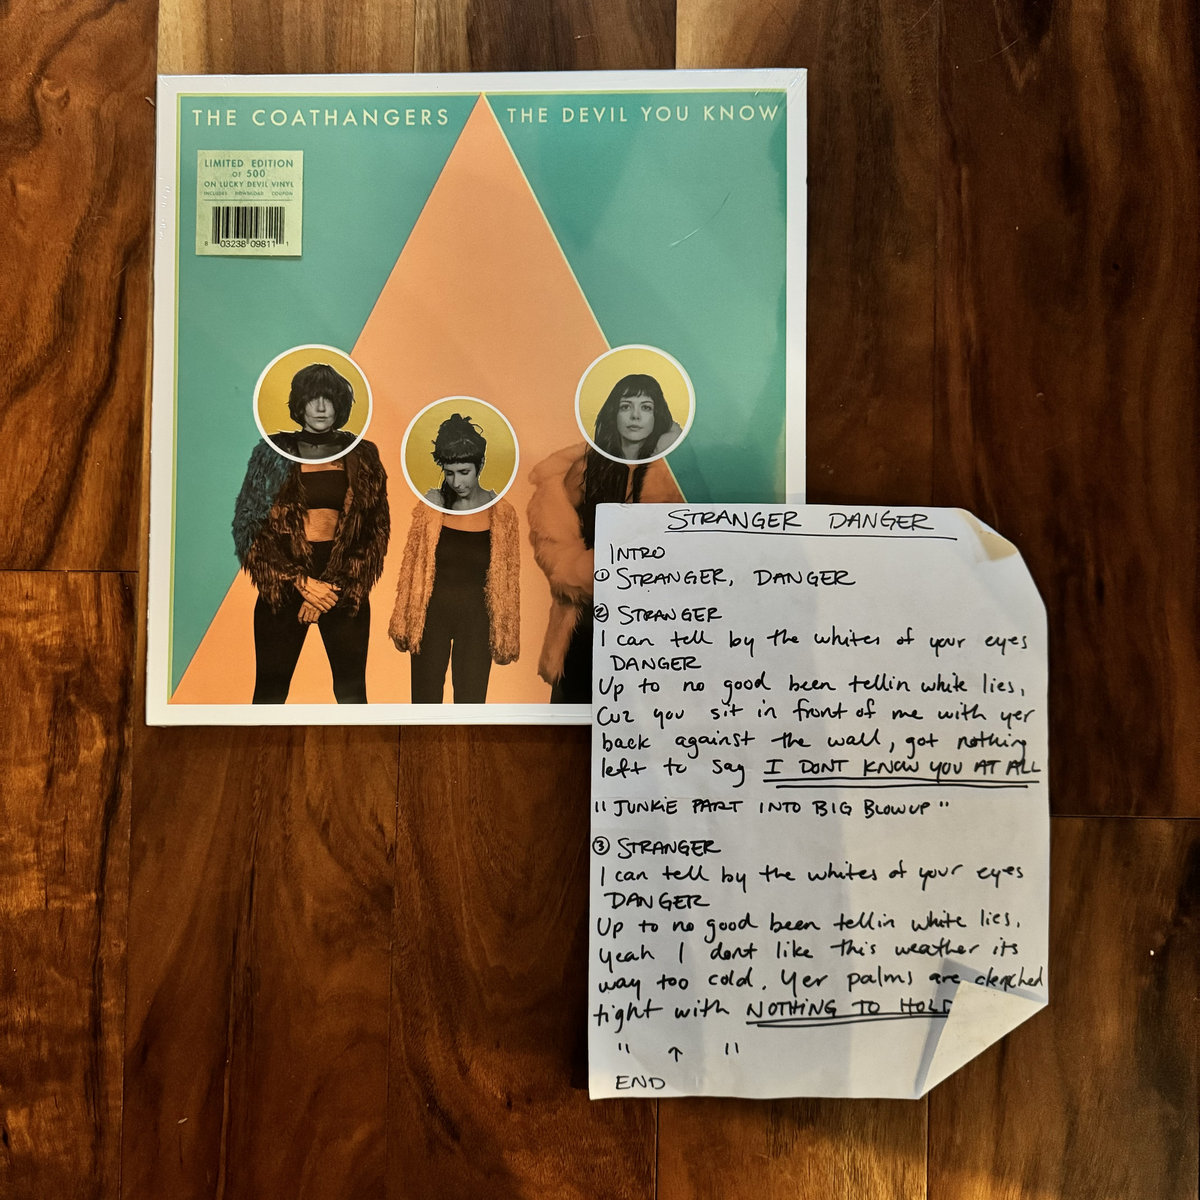 THE COATHANGERS THE DEVIL YOU KNOW
LIMITED EDITION
OF 500
ON LUCKY DEVIL VINYL
INCLUDES DOWNLOAD COUPON
8 03238 09811 1
STRANGER DANGER
INTRO
① STRANGER, DANGER
② STRANGER
I can tell by the whites of your eyes
DANGER
Up to no good been tellin white lies,
Cuz you sit in front of me with yer
back against the wall, got nothing
left to say I DONT KNOW YOU AT ALL
"JUNKIE PART INTO BIG BLOWUP"
③ STRANGER
I can tell by the whites of your eyes
DANGER
Up to no good been tellin white lies,
Yeah I dont like this weather its
way too cold. Yer palms are clenched
tight with NOTHING TO HOLD
" ↑ "
END